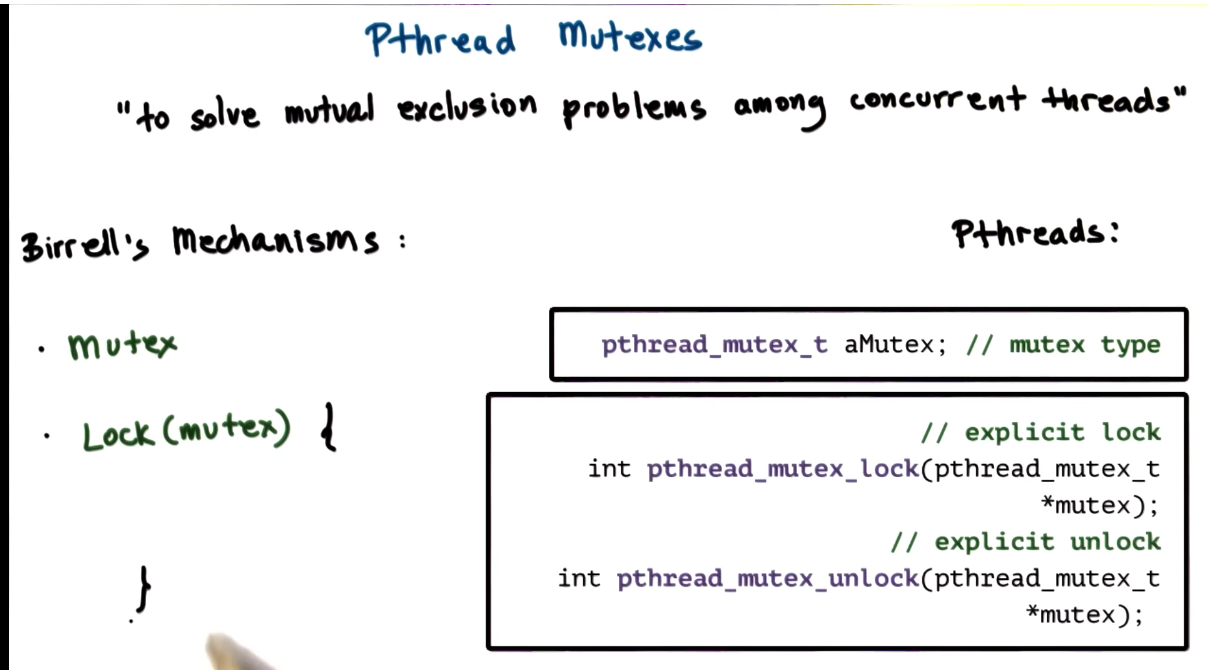 Pthread Mutexes
"to solve mutual exclusion problems among concurrent threads"
Birrell's Mechanisms :
· Mutex
· Lock (mutex) {
}
Pthreads:
pthread_mutex_t aMutex; // mutex type
// explicit lock
int pthread_mutex_lock(pthread_mutex_t
*mutex);
// explicit unlock
int pthread_mutex_unlock(pthread_mutex_t
*mutex);